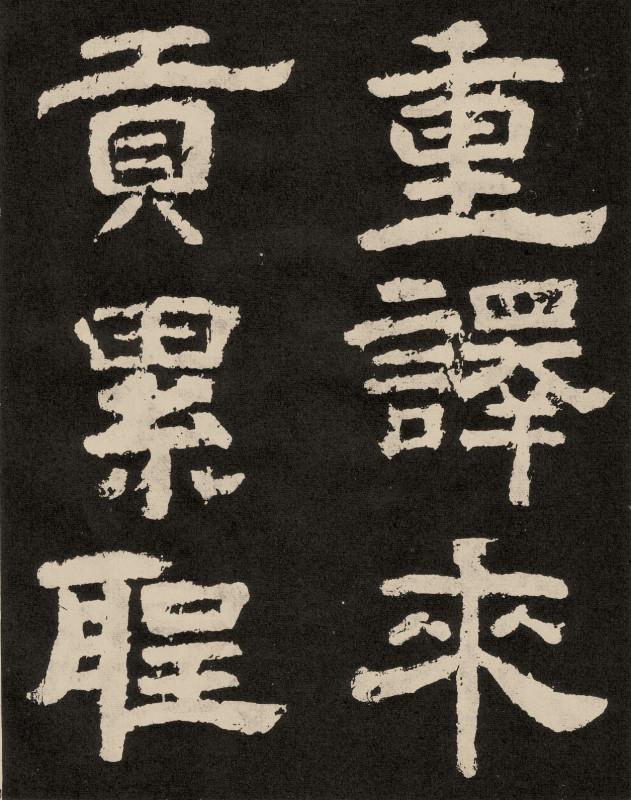 重譯來
貢累聖